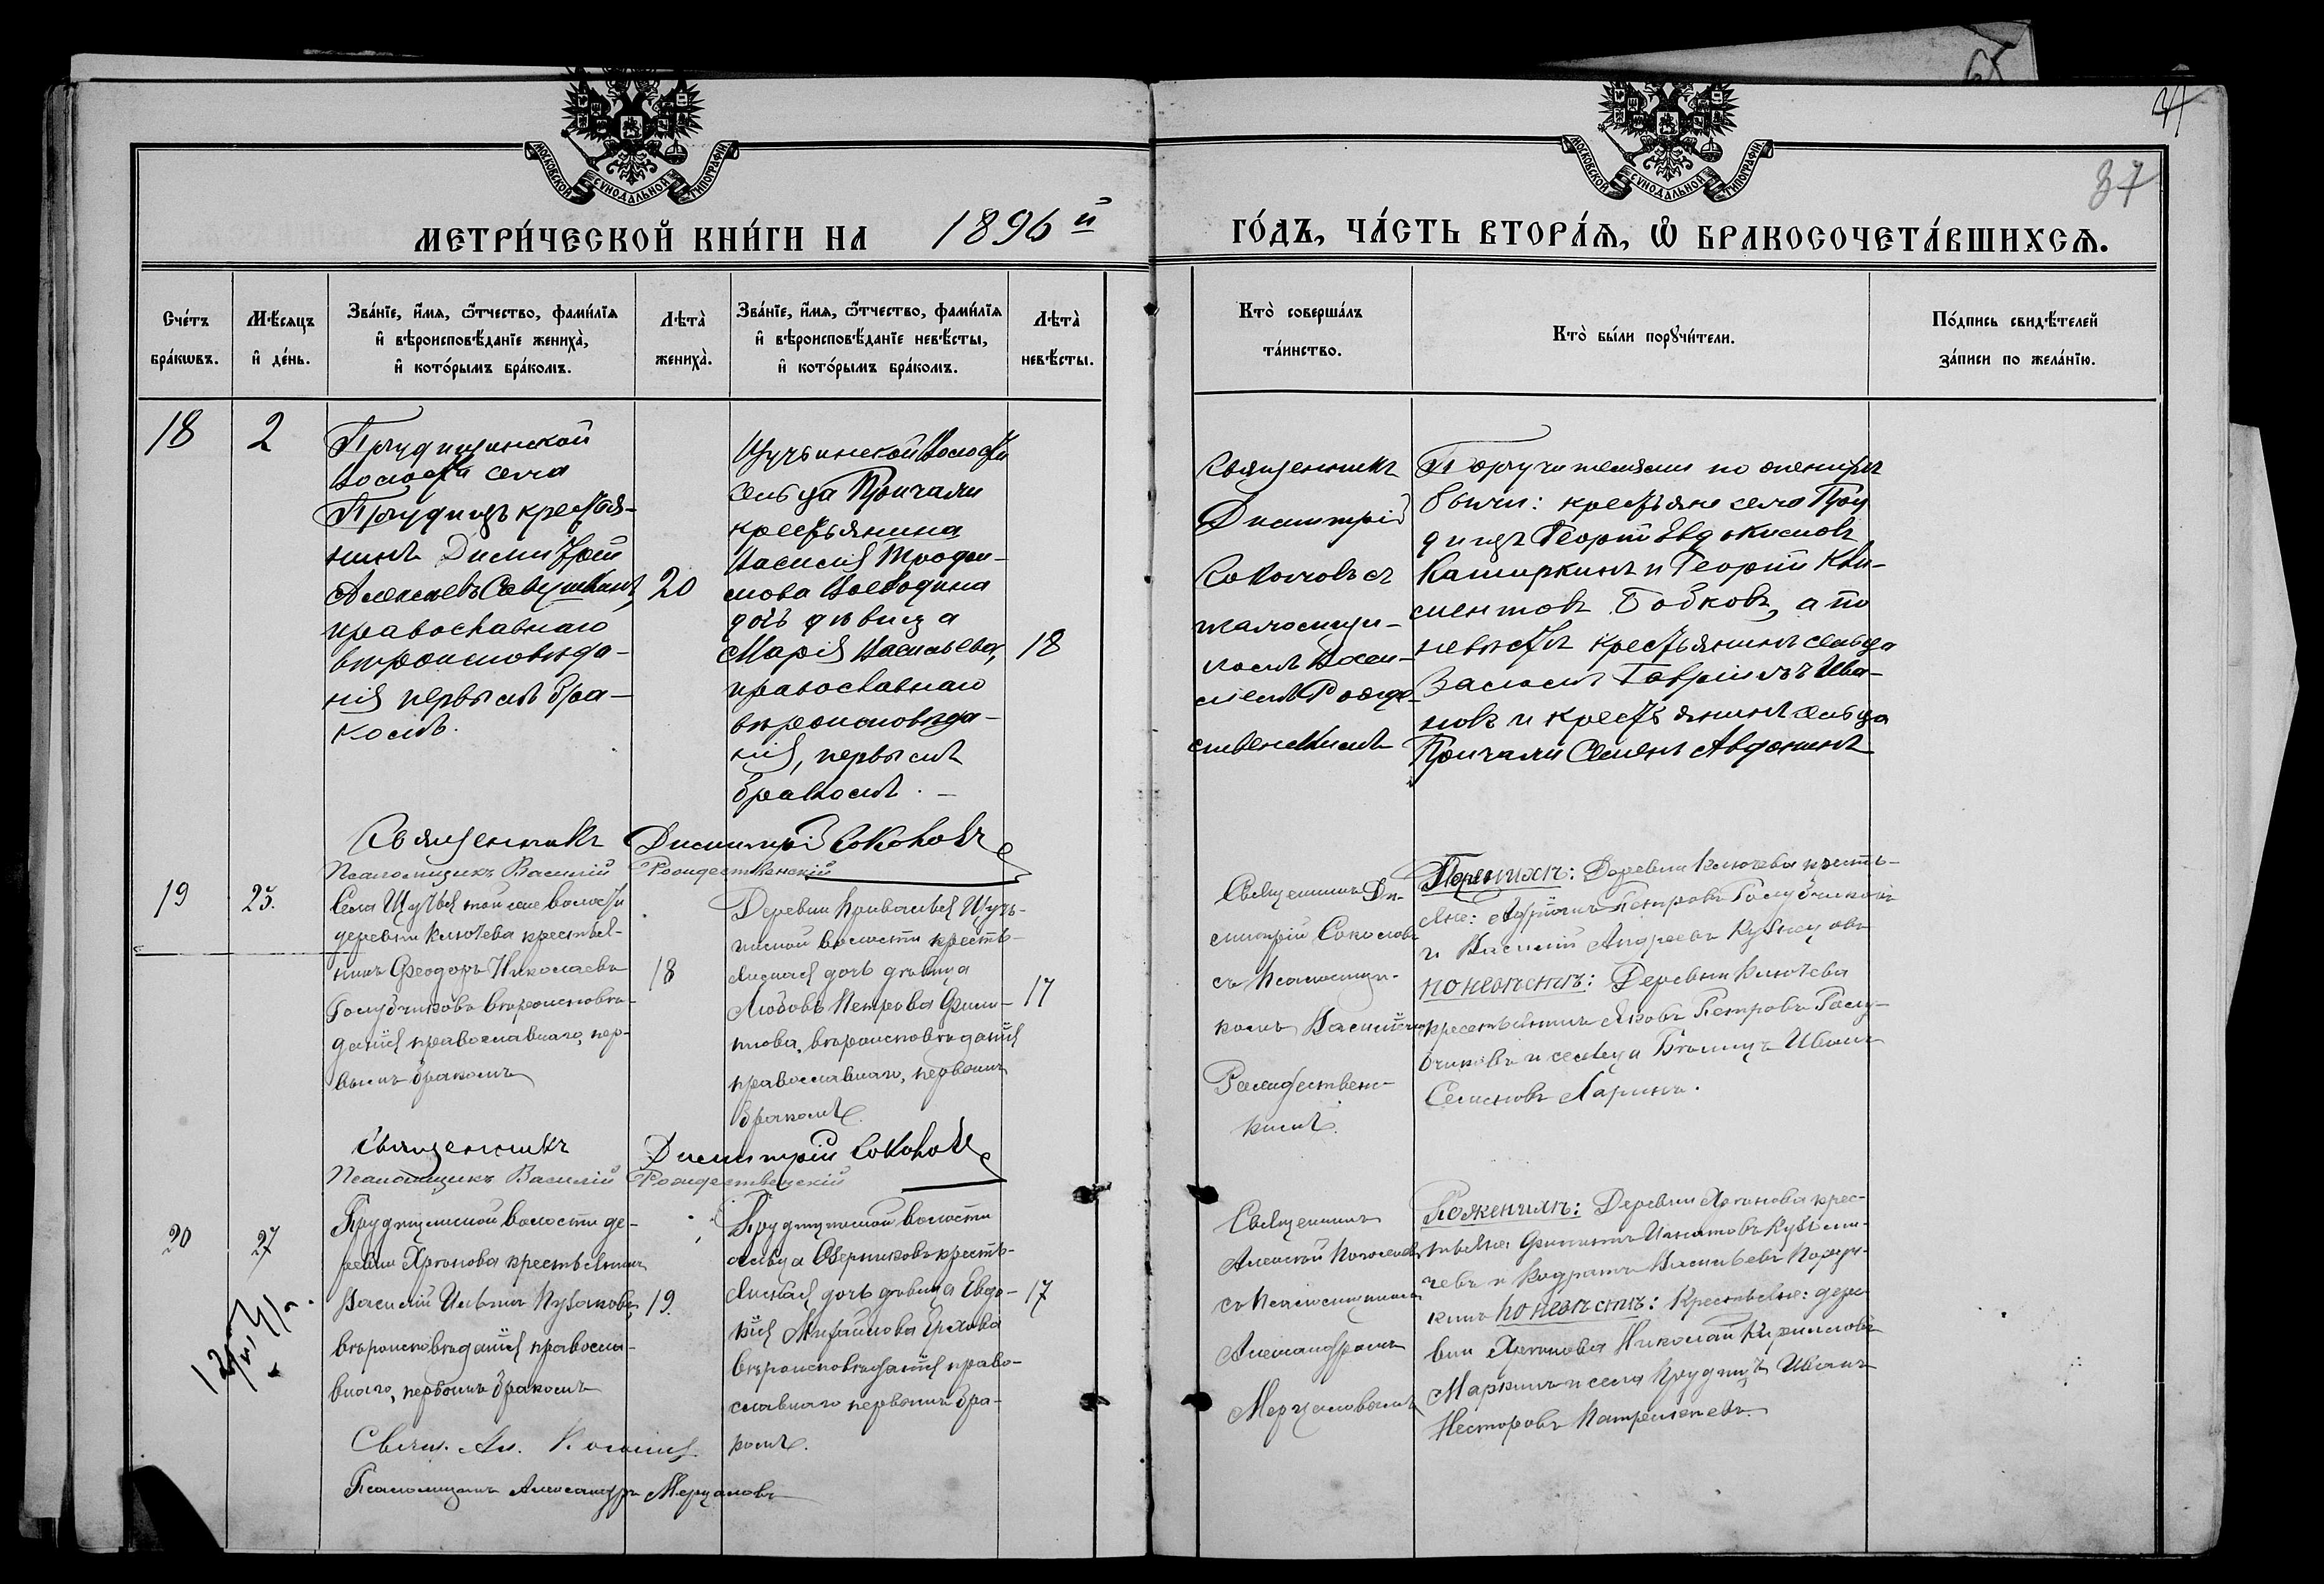 МОСКОВСКОЙ СѴНОДАЛЬНОЙ ТИПОГРАФІИ
МОСКОВСКОЙ СѴНОДАЛЬНОЙ ТИПОГРАФІИ
65
37
МЕТРИ́ЧЕСКОЙ КНИ́ГИ НА 1896й
ГО́ДЪ, ЧА́СТЬ ВТОРА́Ѧ, Ѡ҆ БРАКОСОЧЕТА́ВШИХСѦ.
Сче́тъ
бра́кѡвъ.
Мѣ́сяцъ
и҆ де́нь.
Зва́нїе, и҆́мя, ѻ҆́тчество, фами́лїя
и҆ вѣроисповѣ́данїе жениха̀,
и҆ кото́рымъ бра́комъ.
Лѣта̀
жениха̀.
Зва́нїе, и҆́мя, ѻ҆́тчество, фами́лїя
и҆ вѣроисповѣ́данїе невѣ́сты,
и҆ кото́рымъ бра́комъ.
Лѣта̀
невѣ́сты.
Кто̀ соверша́лъ
та́инство.
Кто̀ бы́ли порꙋчи́тели.
По́дпись свидѣ́телей
за́писи по жела́нїю.
18
2
Прудищинской
волости села
Прудищъ крестья-
нинъ Димитрій
Алексѣевъ Савушкинъ,
православнаго
вѣроисповѣда-
нія первымъ бра-
комъ.
20
Щучьинской волости
сельца Причали
крестьянина
Василія Трофи-
мова Воеводина
дочь дѣвица
Марія Васильева,
православнаго
вѣроисповѣда-
нія, первымъ
бракомъ. –
18
Священникъ
Димитрій
Соколовъ съ
псаломщи-
комъ Васи-
ліемъ Рожде-
ственскимъ
Поручителями по женихѣ
были: крестьяне села Пру
дищъ Георгій Евдокимовъ
Каширкинъ и Георгій Кли-
ментовъ Бобковъ, а по
невѣстѣ крестьянинъ сельца
Гавріилъ Ива-
новъ и крестьянинъ сельца
Причали Семенъ Авдонинъ
Священникъ Димитрій Соколовъ
Псаломщикъ Василій Рождественскій
19
25.
Села Щучья той же волости
деревни Ключева крестья-
нинъ Ѳеодоръ Николаевъ
Голубчиковъ вѣроисповѣ-
данія православнаго, пер-
вымъ бракомъ
18
Деревни Привалья Щучь-
инской волости кресть-
янская дочь дѣвица
Любовь Петрова Фили-
пнова, вѣроисповѣданія
православнаго, первымъ
бракомъ.
17
Священникъ Ди-
митрій Соколовъ
съ псаломщи-
комъ Василіемъ
Рождествен-
скимъ.
По женихѣ: Деревни Ключева кресть-
яне: Петровъ Голубчиковъ
и Василій Андреевъ Кузнецовъ
по невѣстѣ: Деревни Ключева
крестьянинъ Яковъ Петровъ Голу-
бчиковъ и сельца Иванъ
Семеновъ Ларинъ.
Священникъ Димитрій Соколовъ
Псаломщикъ Василій Рождественскій
20
27
Прудищинской волости де-
ревни крестьянинъ
Василій Ильинъ Пузаковъ,
вѣроисповѣданія правосла-
внаго, первымъ бракомъ
19.
Прудищинской волости
сельца Озерниковъ кресть-
янская дочь дѣвица Евдо-
кія Михайлова
вѣроисповѣданія право-
славнаго первымъ бра-
комъ.
17
Священникъ
Алексѣй
съ псаломщикомъ
Александромъ
Мерцаловымъ
По женихѣ: Деревни крес-
тьяне Филиппъ Игнатовъ Кузьми-
чевъ и Кодратъ Васильевъ
кинъ по невѣстѣ: Крестьяне: дере
вни Николай Кириловъ
Маркинъ и села Прудищъ Иванъ
Несторовъ
Свящ. Ал.
Псаломщикъ Александръ Мерцаловъ